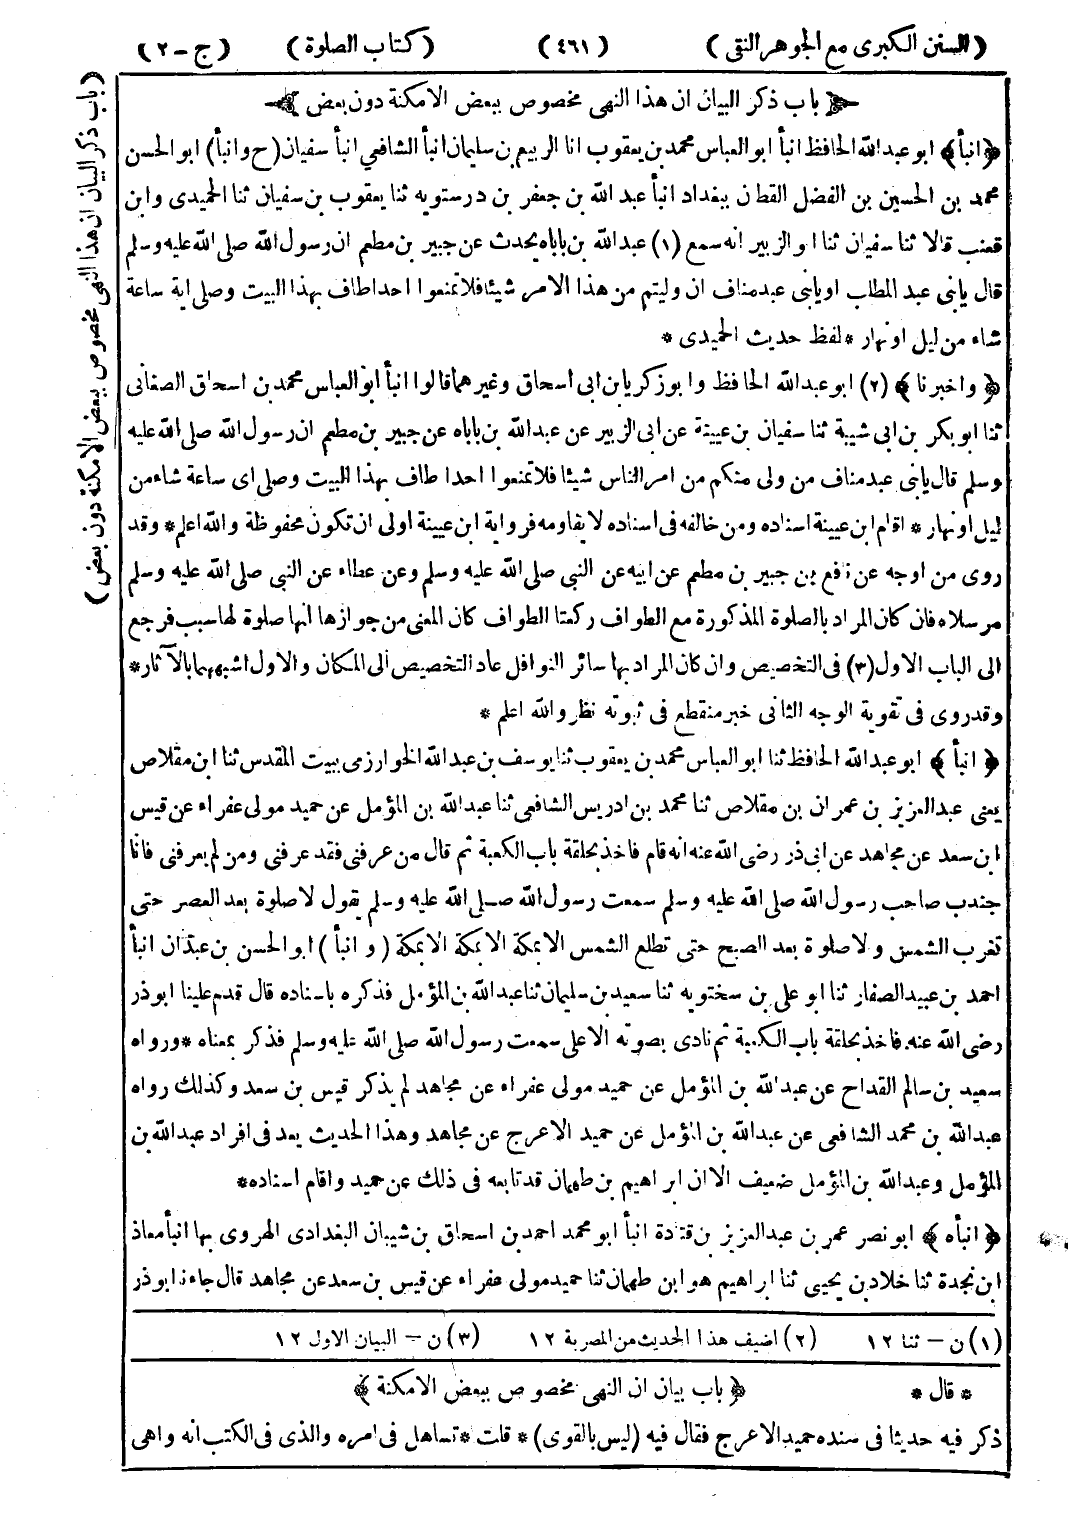 (السنن الكبرى مع الجوهر النقى) (٤٦١) (كتاب الصلوة) (ج-٢)
(باب ذكر البيان ان هذا النهى مخصوص ببعض الامكنة دون بعض)
﴿باب ذكر البيان ان هذا النهى مخصوص ببعض الامكنة دون بعض﴾
﴿انبأ﴾ ابو عبدالله الحافظ انبأ ابو العباس محمد بن يعقوب انا الربيع بن سليمان انبأ الشافعي انبأ سفيان (ح وانبأ) ابو الحسن
محمد بن الحسين بن الفضل القطان ببغداد انبأ عبد الله بن جعفر بن درستويه ثنا يعقوب بن سفيان ثنا الحميدى وابن
قعنب قالا ثنا سفيان ثنا ابو الزبير انه سمع (١) عبدالله بن باباه يحدث عن جبير بن مطعم ان رسول الله صلى الله عليه وسلم
قال يابنى عبد المطلب اويابنى عبد مناف ان وليتم من هذا الامر شيئا فلا تمنعوا احدا طاف بهذا البيت وصلى اية ساعة
شاء من ليل او نهار * لفظ حديث الحميدى *
﴿واخبرنا﴾ (٢) ابو عبدالله الحافظ وابو زكريا بن ابى اسحاق وغيرهما قالوا انبأ ابو العباس محمد بن اسحاق الصغانى
ثنا ابو بكر بن ابى شيبة ثنا سفيان بن عيينة عن ابى الزبير عن عبدالله بن باباه عن جبير بن مطعم ان رسول الله صلى الله عليه
وسلم قال يابنى عبد مناف من ولى منكم من امر الناس شيئا فلا تمنعوا احدا طاف بهذا البيت وصلى اى ساعة شاء من
ليل او نهار * اقام ابن عيينة اسناده ومن خالفه فى اسناده لا يقاومه فرواية ابن عيينة اولى ان تكون محفوظة والله اعلم * وقد
روى من اوجه عن نافع بن جبير بن مطعم عن ابيه عن النبى صلى الله عليه وسلم وعن عطاء عن النبى صلى الله عليه وسلم
مرسلا فان كان المراد بالصلوة المذكورة مع الطواف ركعتا الطواف كان المعنى من جوازها انها صلوة لها سبب فرجع
الى الباب الاول (٣) فى التخصيص وان كان المراد بها سائر النوافل عاد التخصيص الى المكان والاول اشبههما بالآثار *
وقد روى فى تقوية الوجه الثانى خبر منقطع فى ثبوته نظر والله اعلم *
﴿انبأ﴾ ابو عبدالله الحافظ ثنا ابو العباس محمد بن يعقوب ثنا يوسف بن عبدالله الخوارزمى ببيت المقدس ثنا ابن مقلاص
يعنى عبدالعزيز بن عمران بن مقلاص ثنا محمد بن ادريس الشافعى ثنا عبدالله بن المؤمل عن حميد مولى عفراء عن قيس
ابن سعد عن مجاهد عن ابى ذر رضى الله عنه انه قام فاخذ بحلقة باب الكعبة ثم قال من عرفنى فقد عرفنى ومن لم يعرفنى فانا
جندب صاحب رسول الله صلى الله عليه وسلم سمعت رسول الله صلى الله عليه وسلم يقول لا صلوة بعد العصر حتى
تغرب الشمس ولا صلوة بعد الصبح حتى تطلع الشمس الا بمكة الا بمكة الا بمكة (وانبأ) ابو الحسن بن عبدان انبأ
احمد بن عبيد الصفار ثنا ابو على بن سختويه ثنا سعيد بن سليمان ثنا عبدالله بن المؤمل فذكره باسناده قال قدم علينا ابوذر
رضى الله عنه فاخذ بحلقة باب الكعبة ثم نادى بصوته الاعلى سمعت رسول الله صلى الله عليه وسلم فذكر بمعناه * ورواه
سعيد بن سالم القداح عن عبدالله بن المؤمل عن حميد مولى عفراء عن مجاهد لم يذكر قيس بن سعد وكذلك رواه
عبدالله بن محمد الشافعى عن عبدالله بن المؤمل عن حميد الاعرج عن مجاهد وهذا الحديث يعد فى افراد عبدالله بن
المؤمل وعبدالله بن المؤمل ضعيف الا ان ابراهيم بن طهمان قد تابعه فى ذلك عن حميد واقام اسناده *
﴿انبأه﴾ ابو نصر عمر بن عبدالعزيز بن قتادة انبأ ابو محمد احمد بن اسحاق بن شيبان البغدادى الهروى بها انبأ معاذ
ابن نجدة ثنا خلاد بن يحيى ثنا ابراهيم هو ابن طهمان ثنا حميد مولى عفراء عن قيس بن سعد عن مجاهد قال جاءنا ابوذر
(١) ن - ثنا ١٢ (٢) اضيف هذا الحديث من المصرية ١٢ (٣) ن - البيان الاول ١٢
* قال * ﴿باب بيان ان النهى مخصوص ببعض الامكنة﴾
ذكر فيه حديثا فى سنده حميد الاعرج فقال فيه (ليس بالقوى) * قلت * تساهل فى امره والذى فى الكتب انه واهى